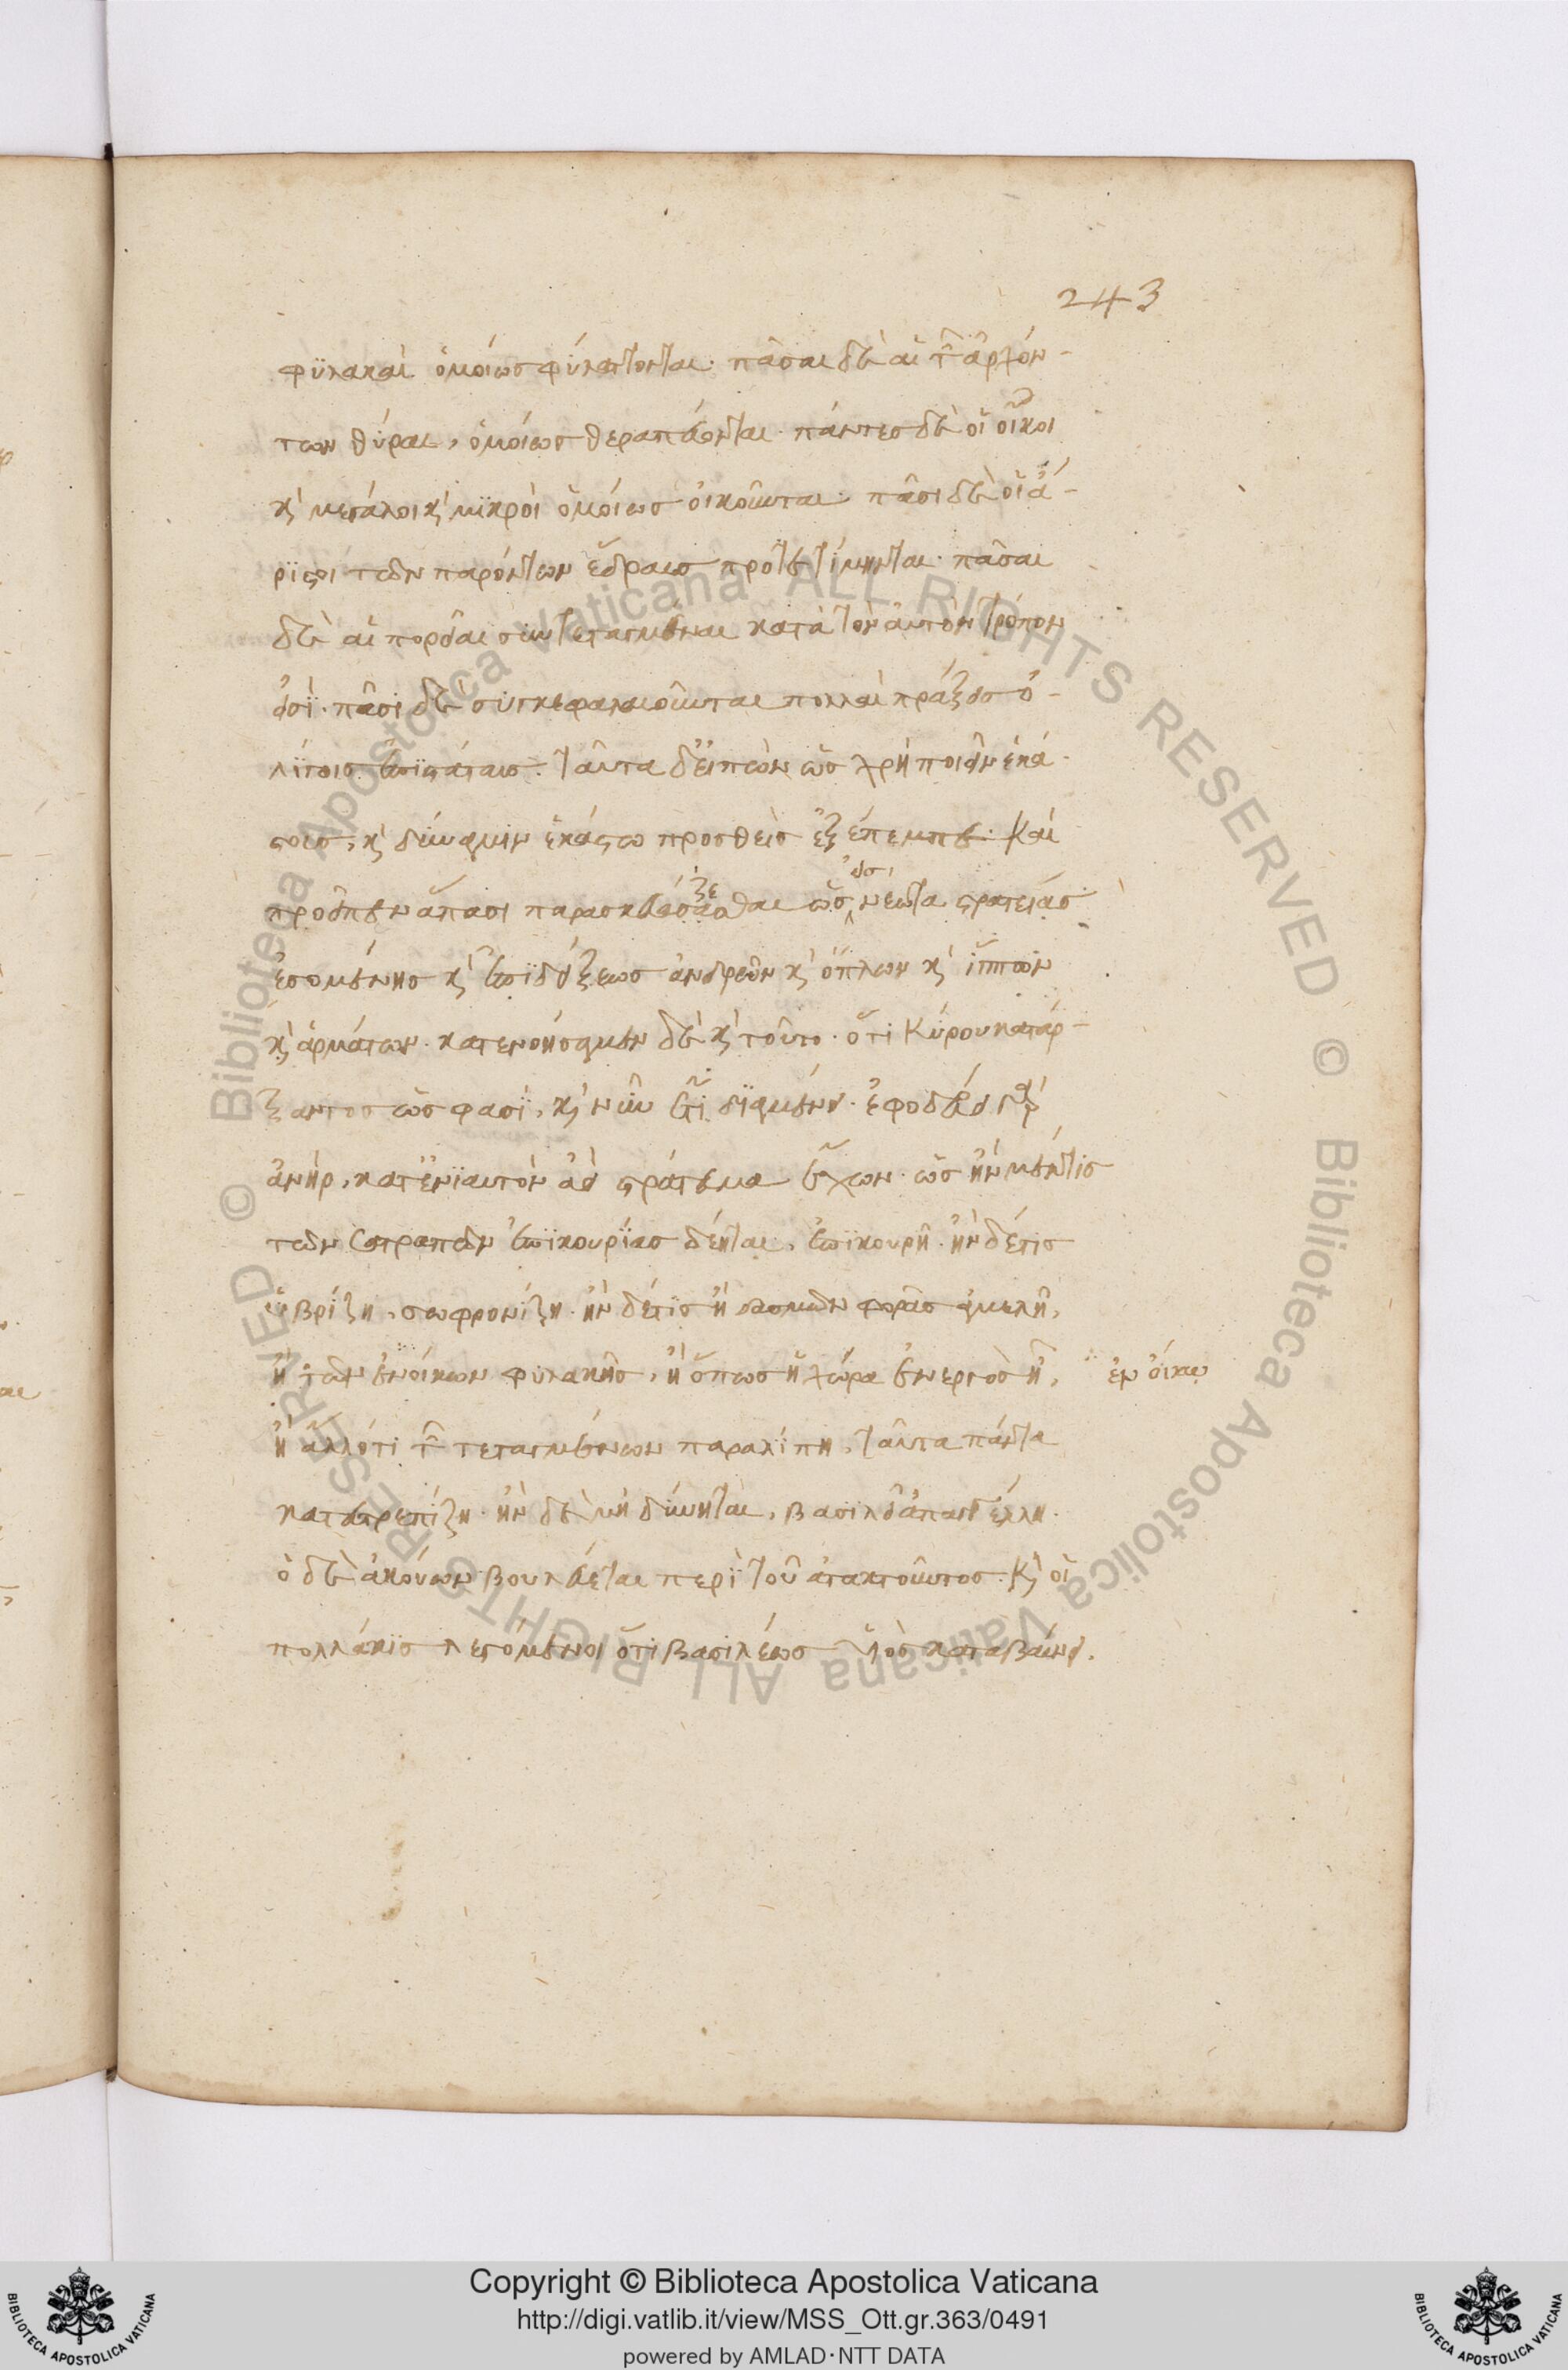 243
φϋλακαὶ ὁμοίως φϋλάττονται· πᾶσαι δὲ αἱ τῶν ἀρχόν-
των θύραι, ὁμοίως θεραπεύονται· πάντες δὲ οἱ οἶκοι
καὶ μεγάλοι καὶ μϊκροὶ ὁμοίως οἰκοῦνται· πᾶσι δὲ οἱ ἄ-
ρϊστοι τῶν παρόντων ἕδραις προτετίμηνται· πᾶσαι
δὲ αἱ πορεῖαι συντεταγμέναι κατὰ τὸν αὐτὸν τρόπον
εἰσὶ· πᾶσι δὲ συγκεφαλαιοῦνται πολλαὶ πράξεις ὀ-
λίγοις ἐπϊστάταις. ταῦτα δ' εἰπὼν ὡς χρὴ ποιεῖν ἑκά-
στοις, καὶ δύναμιν ἑκάστω προσθεὶς ἐξέπεμπε· Καὶ
προεῖπεν ἅπασι παρασκευάσασθαι ὡς εἰς νέωτα στρατείας
ξε
ἐσομένης καὶ ἐπϊδείξεως ἀνδρῶν καὶ ὅπλων καὶ ἵππων
καὶ ἁρμάτων. κατενοήσαμεν δὲ καὶ τοῦτο· ὅτι Κύρου κατάρ-
ξαντος ὥς φασϊ, καὶ νῦν ἔτι δϊαμένει· ἐφοδεύει γὰρ
ἀνὴρ, κατ' ἐνϊαυτὸν ἀεὶ στράτευμα ἔχων· ὡς ἢν μέν τις
τῶν σατραπῶν ἐπϊκουρίας δέηται, ἐπϊκουρῆ· ἢν δέ τις
ὑβρίζη, σωφρονίζη· ἢν δέ τις ἢ δασμῶν φορᾶς ἀμελῆ,
ἢ τῶν ἐνοίκων φυλακῆς, ἢ ὅπως ἡ χώρα ἐνεργὸς ἦ,
ἐν οἴκω
ἢ ἄλλο τι τῶν τεταγμένων παραλίπη, ταῦτα πάντα
κατευτρεπίζη· ἢν δὲ μὴ δύνηται, βασϊλεῖ ἀπαγγέλλη·
ὁ δὲ ἀκούων βουλεύεται περὶ τοῦ ἀτακτοῦντος. Καὶ οἱ
πολλάκϊς λεγόμενοι ὅτι βασιλέως υἱὸς καταβαίνει.
Copyright © Biblioteca Apostolica Vaticana
http://digi.vatlib.it/view/MSS_Ott.gr.363/0491
powered by AMLAD·NTT DATA
© Biblioteca Apostolica Vaticana ALL RIGHTS RESERVED
© Biblioteca Apostolica Vaticana ALL RIGHTS RESERVED
BIBLIOTECA APOSTOLICA VATICANA
BIBLIOTECA APOSTOLICA VATICANA